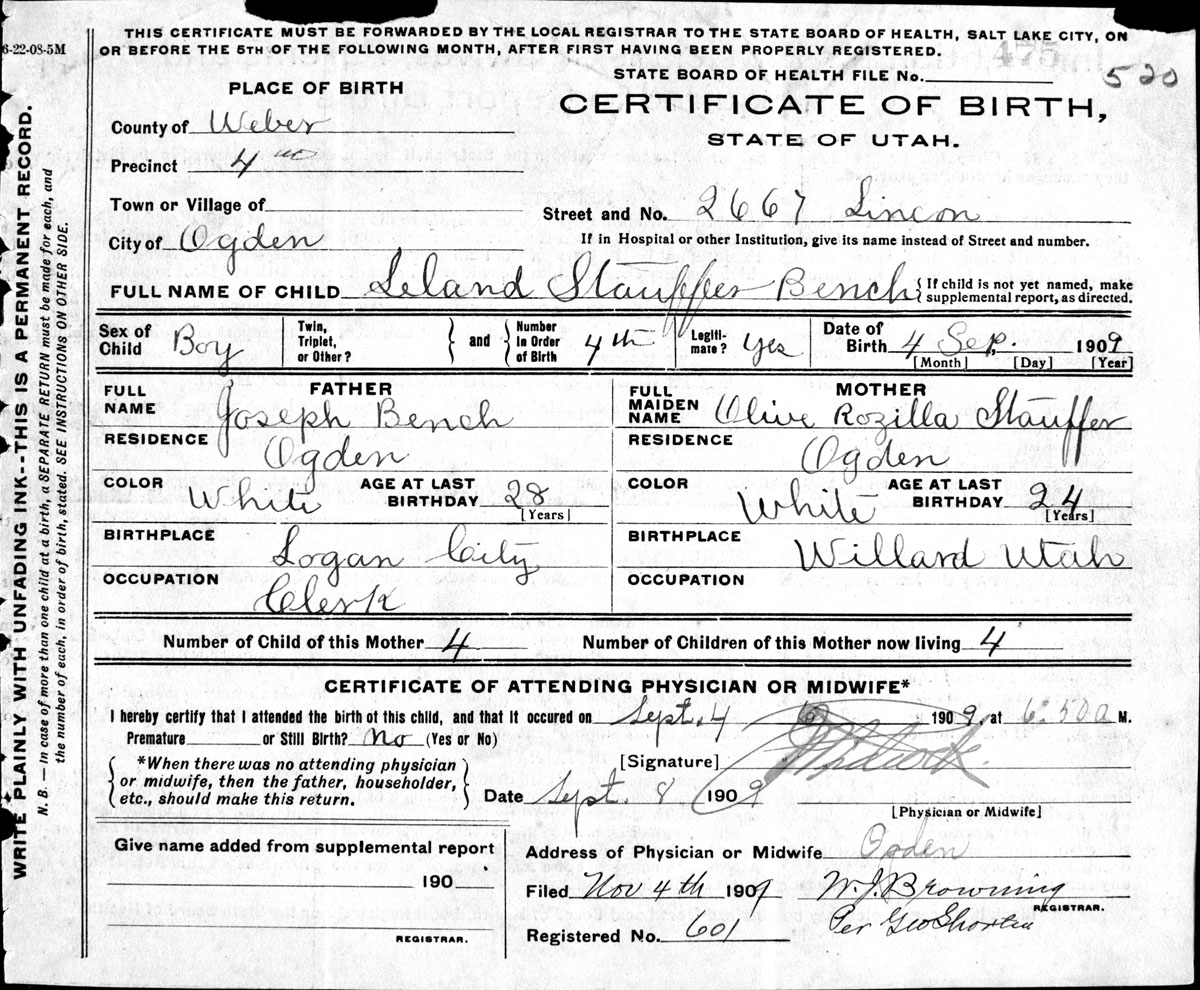 6-22-08-5M
THIS CERTIFICATE MUST BE FORWARDED BY THE LOCAL REGISTRAR TO THE STATE BOARD OF HEALTH, SALT LAKE CITY, ON
OR BEFORE THE 5TH OF THE FOLLOWING MONTH, AFTER FIRST HAVING BEEN PROPERLY REGISTERED.
475
520
STATE BOARD OF HEALTH FILE No.
PLACE OF BIRTH
CERTIFICATE OF BIRTH,
STATE OF UTAH.
County of Weber
Precinct 4th
Town or Village of
Street and No. 2667 Lincon
City of Ogden
If in Hospital or other Institution, give its name instead of Street and number.
FULL NAME OF CHILD Leland Stauffer Bench { If child is not yet named, make
supplemental report, as directed.
Sex of Child Boy Twin, Triplet, or Other? { } and { Number in Order of Birth 4th Legiti-mate? yes Date of Birth 4 Sep. 1909
[Month] [Day] [Year]
FATHER MOTHER
FULL NAME Joseph Bench FULL MAIDEN NAME Olive Rozilla Stauffer
RESIDENCE Ogden RESIDENCE Ogden
COLOR White AGE AT LAST BIRTHDAY 28 [Years] COLOR White AGE AT LAST BIRTHDAY 24 [Years]
BIRTHPLACE Logan City BIRTHPLACE Willard Utah
OCCUPATION Clerk OCCUPATION
Number of Child of this Mother 4 Number of Children of this Mother now living 4
CERTIFICATE OF ATTENDING PHYSICIAN OR MIDWIFE*
I hereby certify that I attended the birth of this child, and that it occured on Sept. 4 1909, at 6:50 a M.
Premature or Still Birth? No (Yes or No)
{ *When there was no attending physician
or midwife, then the father, householder,
etc., should make this return. }
[Signature]
Date Sept. 8 1909
[Physician or Midwife]
Give name added from supplemental report
190
REGISTRAR.
Address of Physician or Midwife Ogden
Filed Nov 4th 1909 W. J. Browning
REGISTRAR.
Per Geo Shorten
Registered No. 601
WRITE PLAINLY WITH UNFADING INK--THIS IS A PERMANENT RECORD.
N. B. — In case of more than one child at a birth, a SEPARATE RETURN must be made for each, and
the number of each, in order of birth, stated. SEE INSTRUCTIONS ON OTHER SIDE.